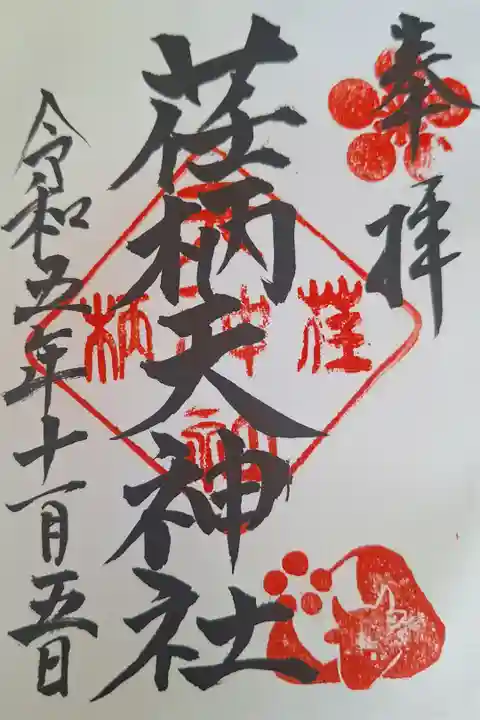 奉拝
荏柄天神社
令和五年十一月五日
荏
柄